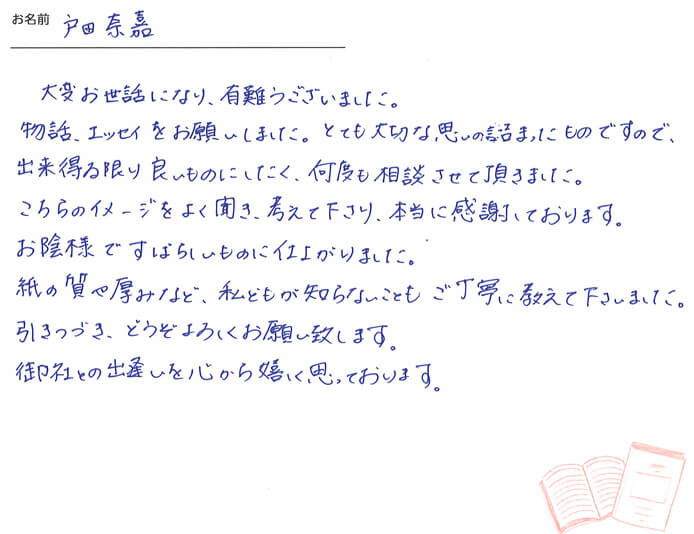 お名前 戸田奈嘉
大変お世話になり、有難うございました。
物語、エッセイをお願いしました。とても大切な思いの詰まったものですので、
出来得る限り良いものにしたく、何度も相談させて頂きました。
こちらのイメージをよく聞き、考えて下さり、本当に感謝しております。
お陰様ですばらしいものに仕上がりました。
紙の質や厚みなど、私どもが知らないこともご丁寧に教えて下さいました。
引きつづき、どうぞよろしくお願い致します。
御社との出逢いを心から嬉しく思っております。